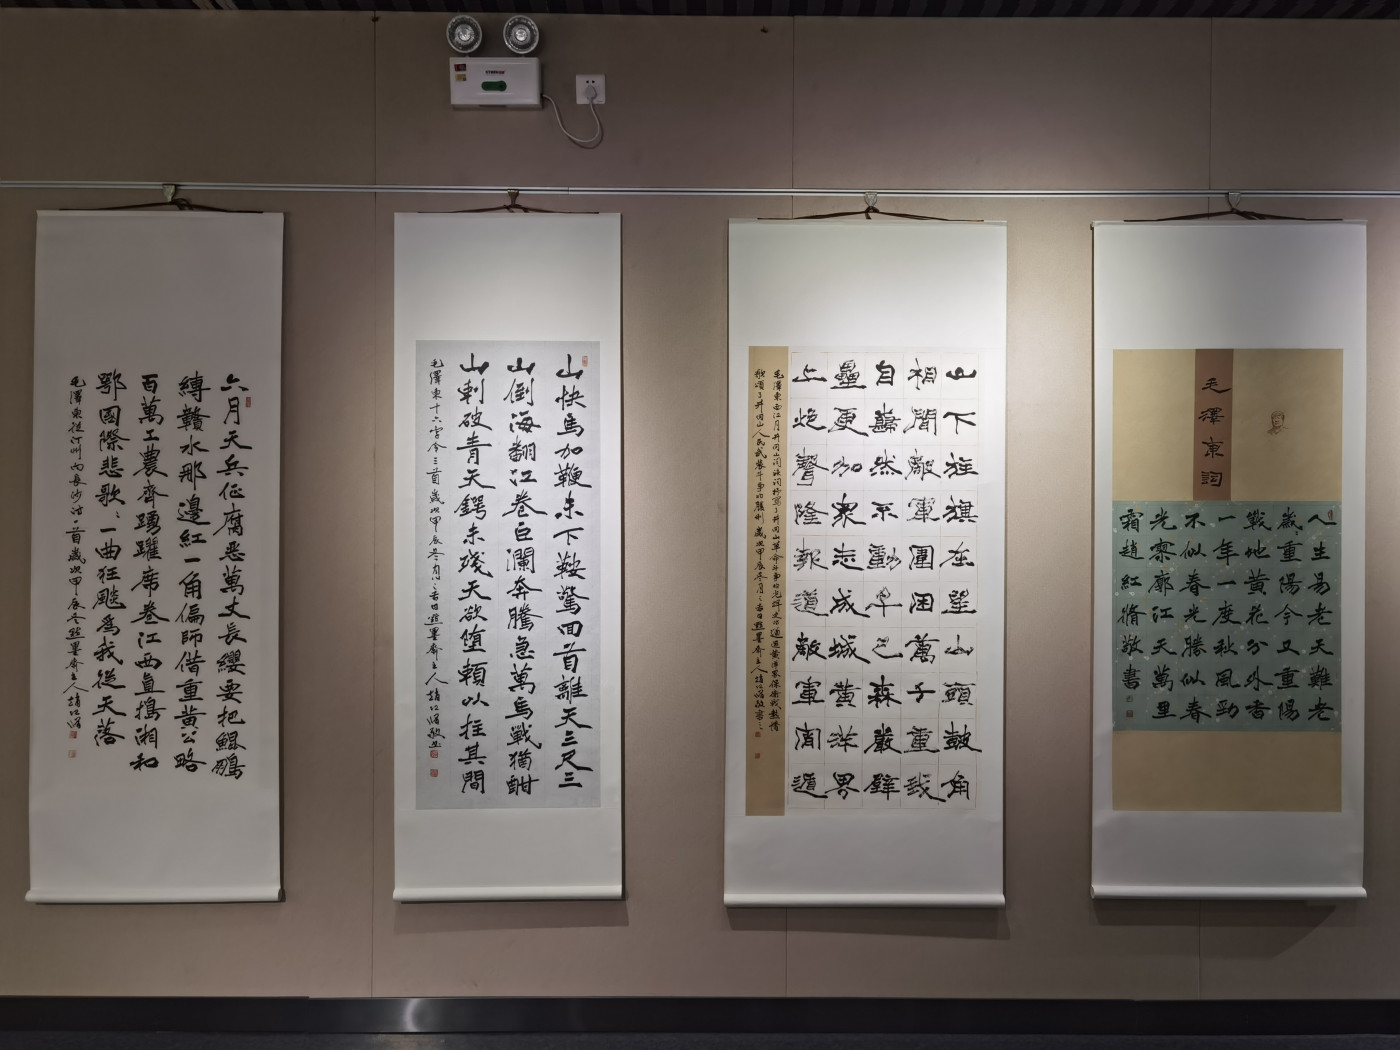 六月天兵征腐恶萬丈長纓要把鯤鵬
縛贛水那邊紅一角偏師借重黄公略
百萬工農齊踴躍席卷江西直搗湘和
鄂國際悲歌歌一曲狂飚為我從天落
毛澤東從汀州向長沙詞一首歲次甲辰冬
山快馬加鞭未下鞍驚回首離天三尺三
山倒海翻江卷巨瀾奔騰急萬馬戰猶酣
山刺破青天鍔未殘天欲堕頼以拄其間
毛澤東十六字令三首歲次甲辰冬月
山下旌旗在望山頭鼓角
相聞敵軍圍困萬千重我
自巋然不動早已森嚴壁
壘更加衆志成城黄洋界
上炮聲隆報道敵軍宵遁
毛澤東西江月井冈山
毛澤東詞
人生易老天難老
歲歲重陽今又重陽
戰地黄花分外香
一年一度秋風勁
不似春光勝似春
光寥廓江天萬里
霜趙红脩敬書